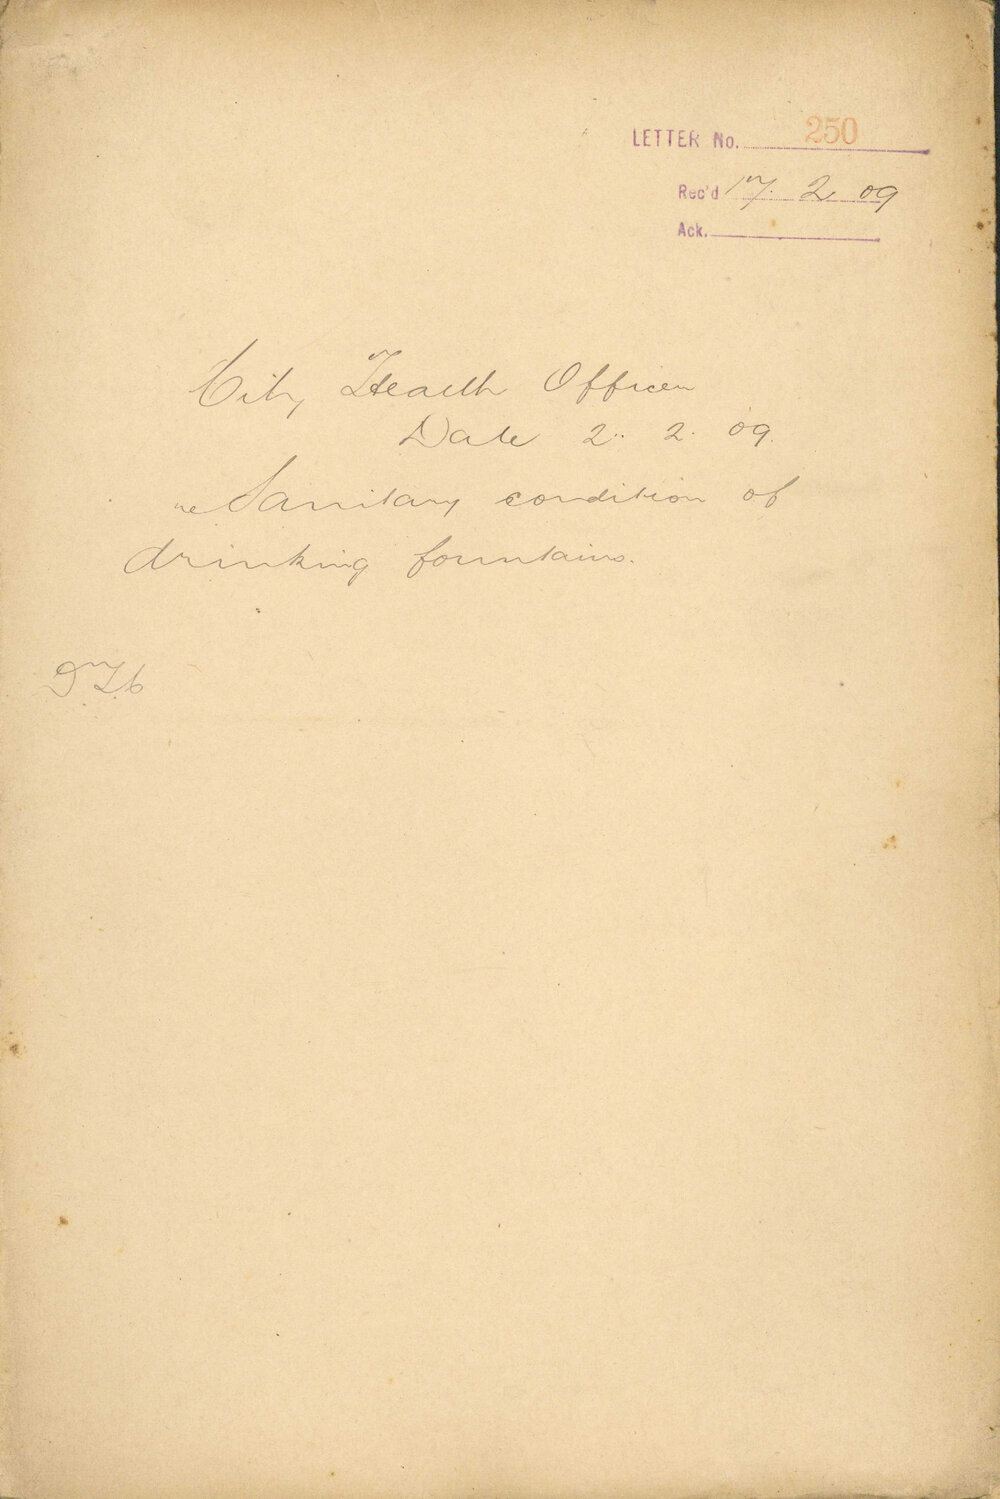 LETTER No. 250
Rec'd 17. 2 09
Ack.
City Health Officer
Date 2. 2. 09.
re Sanitary condition of
drinking fountains.